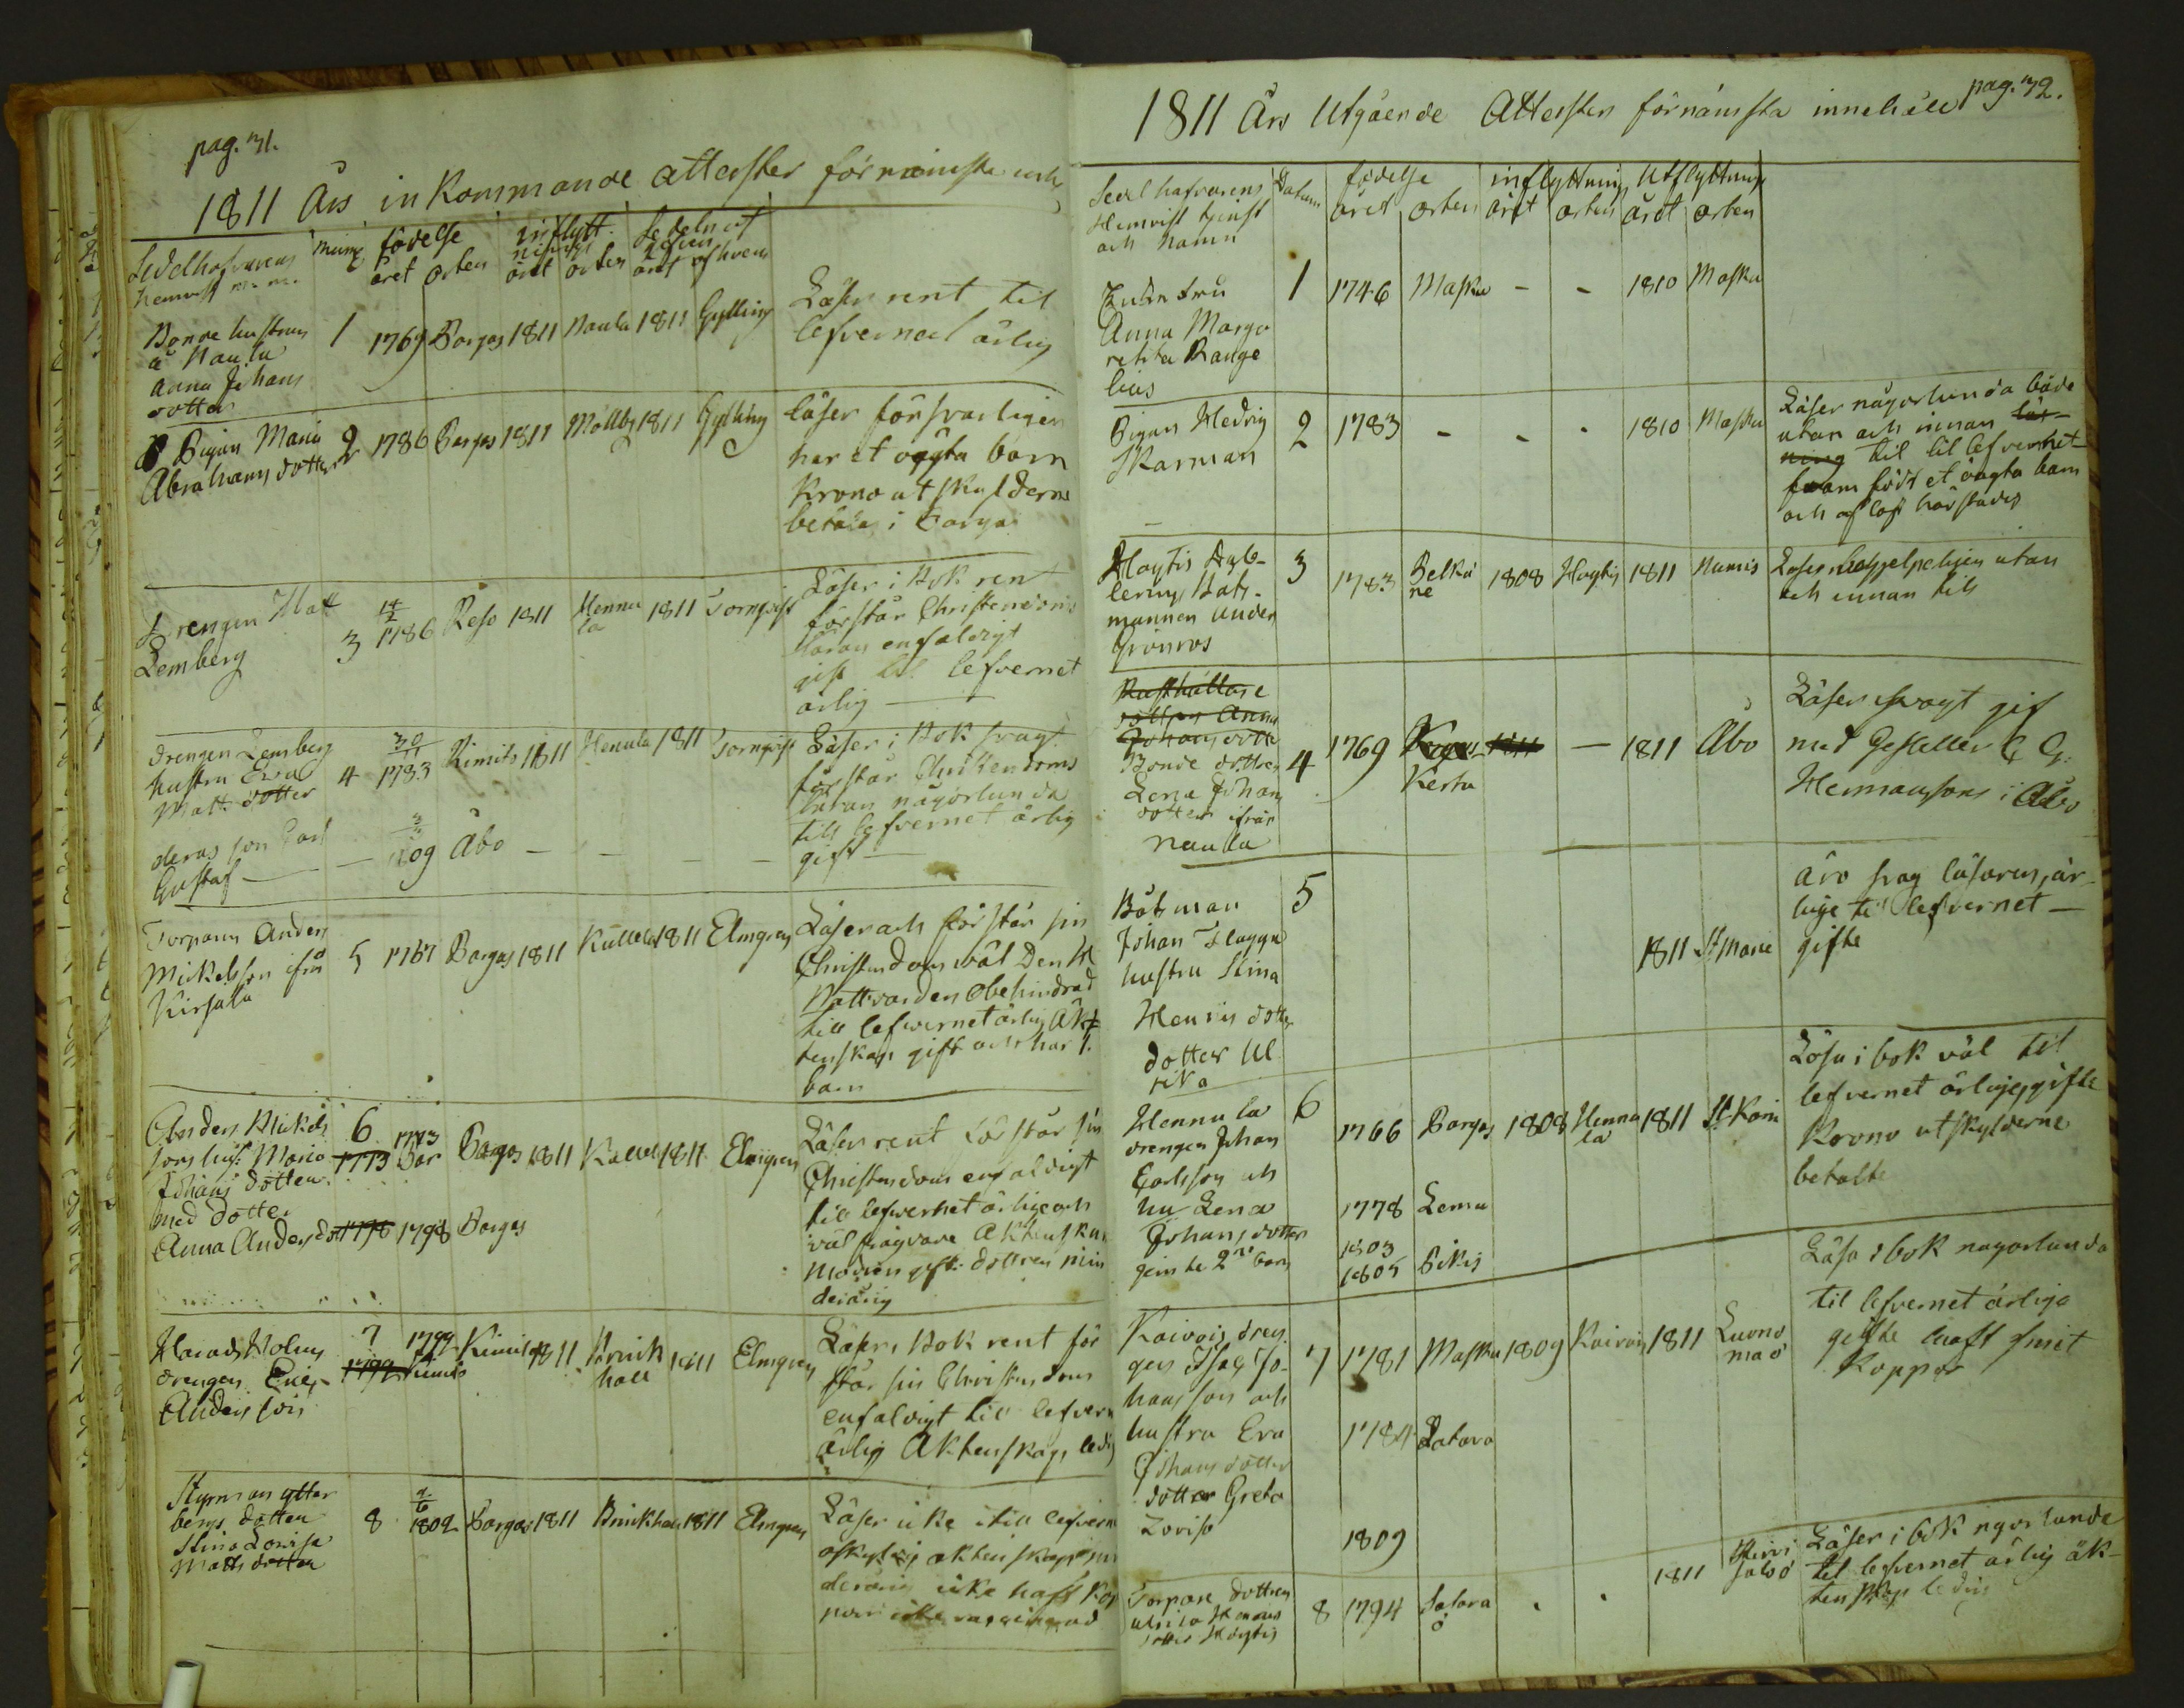 pag. 71.
1811 Års inkommande attester förnämsta
Sedelhafvarens
hemvist m. m.
födelse
året orten
inflytt
nings
året orten
Sedeln ut
gifven
året af hvem
Bonde hustrun
å Naula
Anna Johans
dotter
1 1769 Pargas 1811 Naula 1811 Gylling
Läser rent til
lefvernet ärlig
Pigan Maria
Abrahams dotter
2 1786 Pargas 1811 Mällby 1811 Gylling
läser försvarligen
har et oägta barn
Krono utskylderna
betalas i Parga
Drengen Matt
Lemberg
3 1786 Reso 1811 Hennu
la 1811 Tornqvist
Läser i Bok rent
förstår Christendoms
läran enfaldigt
gift til lefvernet
ärlig
drengen Lemberg
hustru Eva
Matt. dotter
4 30/11 1783 Kimito 1811 Henula 1811 Tornqvist
Läser i Bok svagt
förstår Christendoms
läran någorlunda
till lefvernet ärlig
gift
deras son Carl
Gustaf — — 1809 Åbo — — — —
Torparn Anders
Mickelsson ifrån
Kirjala
5 1767 Pargas 1811 Kullela 1811 Elmgren
Läser och förstår sin
Christendom wäl Den H
Nattvarden obehindrad
till lefwernet ärlig Äk
tenskap gift och har 1.
barn
Anders Mickels
sons hust. Maria
Johans dotter
med dotter
Anna Anders dott
6
1773 1773
Par Pargas 1811 Kullela 1811 Elmgren
1798 1798 Pargas
Läser rent förstår sin
Christendom enfaldigt
till lefwernet ärlige och
wäl frägdade Äktenskap
Modren gift. dottren min
derårig
Harads Holms
drengen Eric
Anders son
7
1792 1792
Kimito Kimito 1811 Brink
hall 1811 Elmgren
Läser i Bok rent för
står sin Christendom
enfaldigt till lefvern
ärlig Äktenskaps ledig
Styrman ytter
bergs dotter
Stina Lovisa
Matts dotter
8 1802 Pargas 1811 Brinkhall 1811 Elmgren
Läser icke till lefvern
oskyldig äktenskap min
derårig icke haft kop
por icke vaccinerad
pag. 72.
1811 Års Utgående Attester förnämsta innehåll
Sedelhafvarens
Hemvist tjenst
och namn
Datum
födelse
året orten
inflyttnings
året orten
Utflyttnings
året orten
Enkefru
Anna Marga
retha Range
lius
1 1746 Masku - - 1810 Masku
Pigan Hedvig
Skarman
2 1783 - - - 1810 Masku
Läser någorlunda både
utan och innan läs-
ning til til lefvernet
fram födt et oägta barn
och afløst härstädes
Haytis Dub-
lerings Båts-
mannen Anders
Grönros
3 1783 Pelkä
ne 1808 Haytis 1811 Numis
och innan till
Rusthållare
dottren Anna
Johans dotter
Bonde dottren
Lena Johans
dotter ifrån
Naula
4 1769 Pargas 1811 — 1811 Åbo
Kertu
Läser svagt gift
med Gesellen C G
Hermansson i Åbo
Båtsman
Johan Flagga
hustru Stina
Henrics dotter
dotter Ul
rika
5
1811 St. Marie
Äro svag läsaren, är-
lige til lefvernet —
gifte
Hennu la
drengen Johan
Carlsson och
hu Lena
Johans dotter
jemte 2ne barn
6 1766 Pargas 1808 Henna
la 1811 St. Karin
1778 Lemu
1803
1805 Pikis
Läsa i bok väl til
lefvernet ärlige, gifte
Krono utskylderne
betalte
Kaivois dren
gen Isac Jo-
hansson och
hustru Eva
Johans dotter
dotter Greta
Lovisa
7 1781 Masku 1809 Kaivois 1811 Luono
maö
1784 Satava
1809
Läsa i bok någorlunda
til lefvernet ärliga
gifte haft smit
Koppor
Torpare dottren
Ulrica Hanns
dotter Haytis
8 1794 Satava
ö . . 1811 Hirvi
salo
Läser i bok någorlunda
til lefvernet ärlig äk-
tenskap ledig